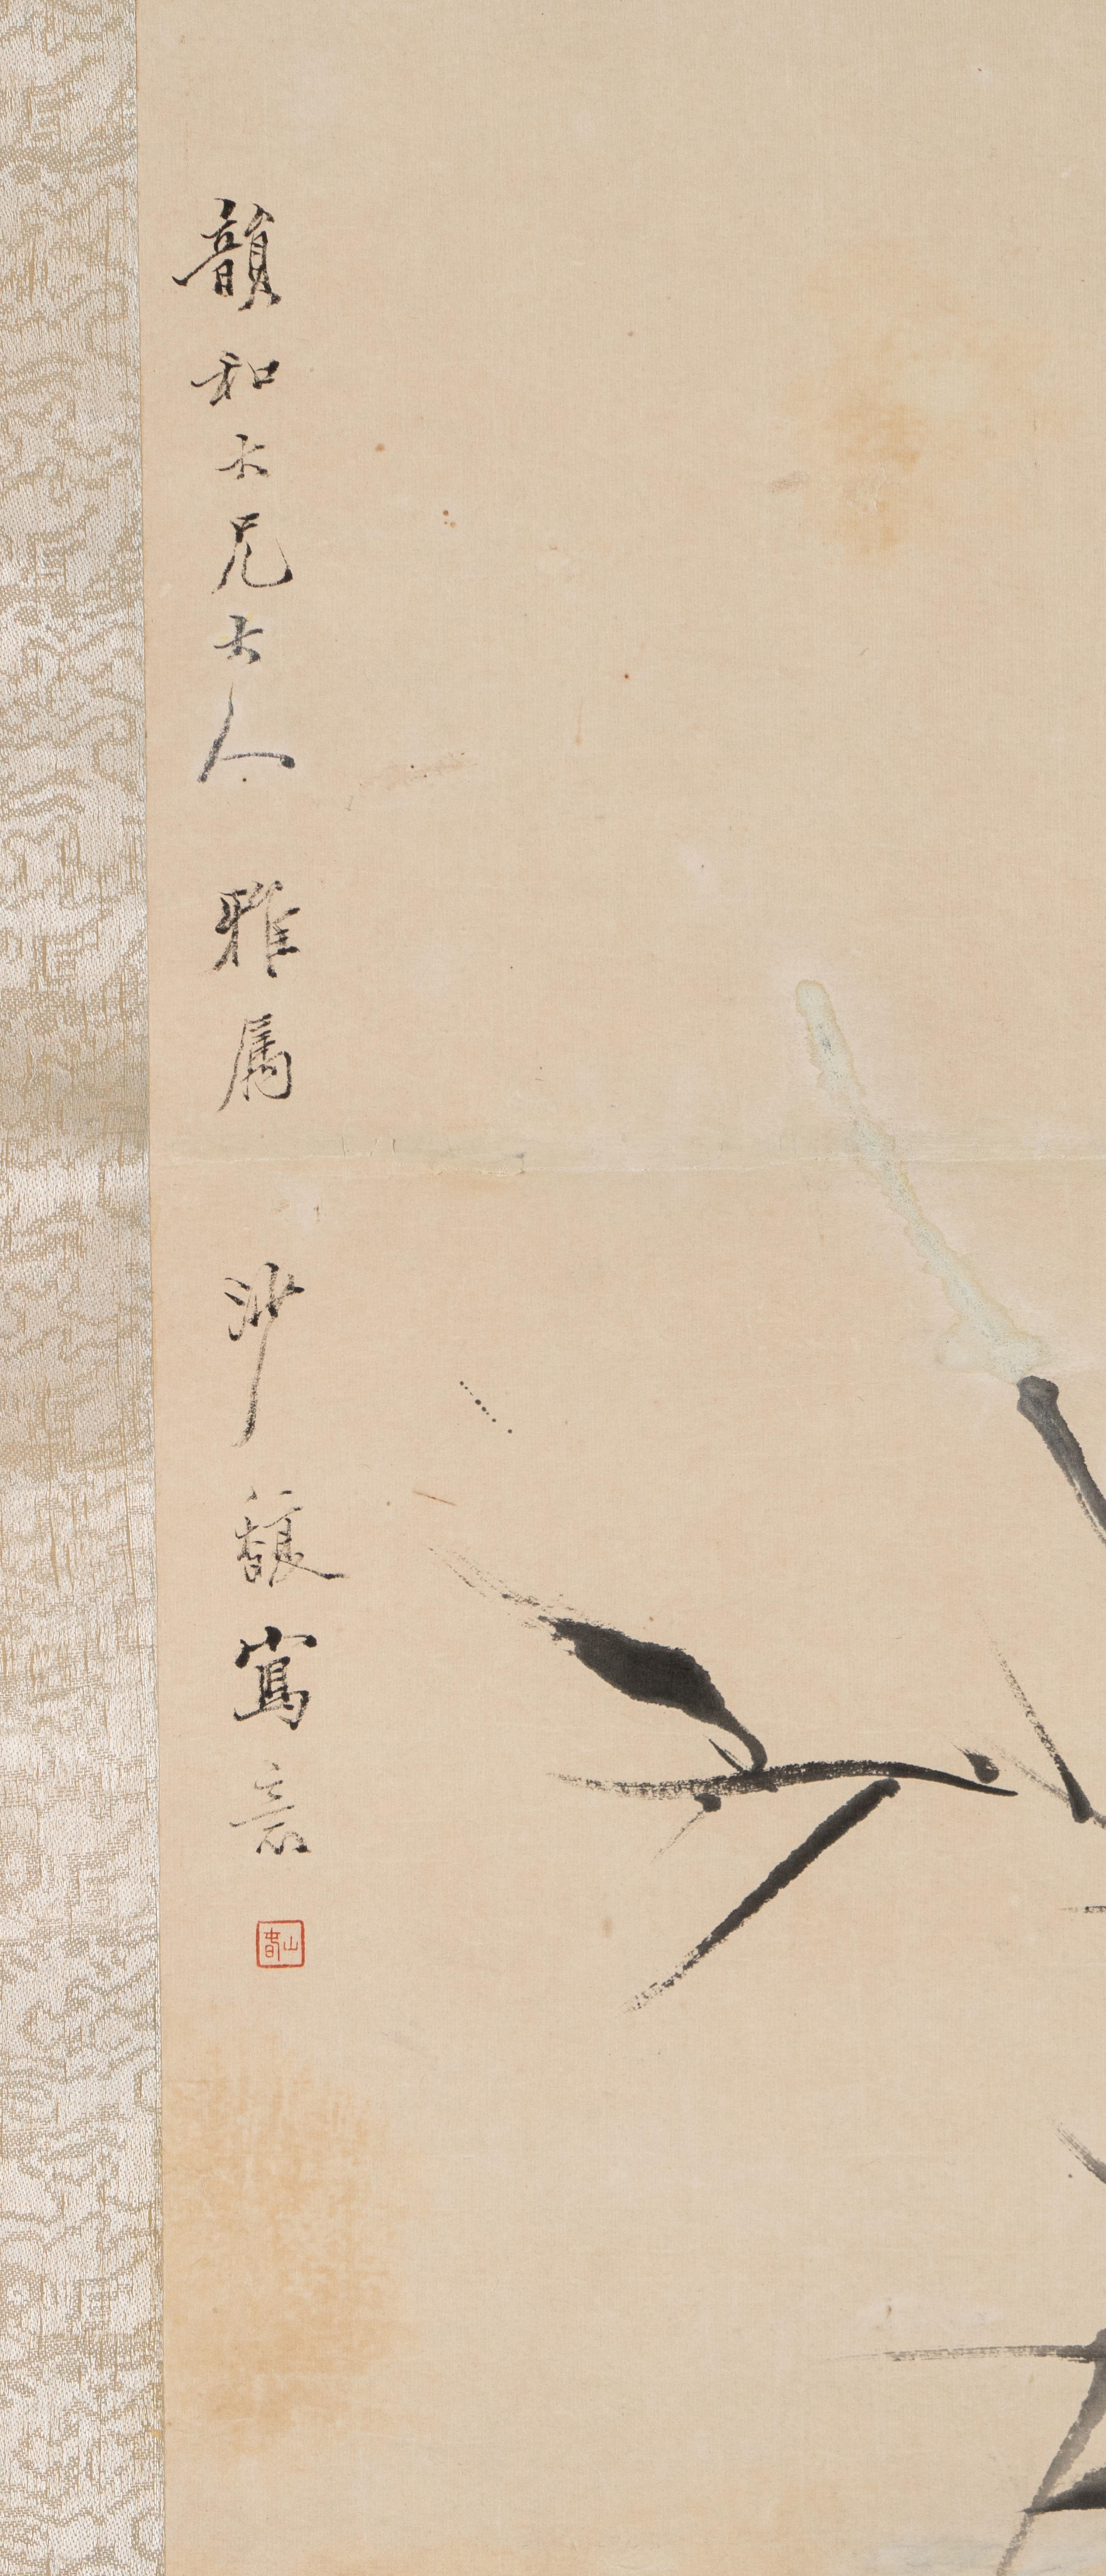 韻和大兄大人 雅属 沙馥寫意
山春